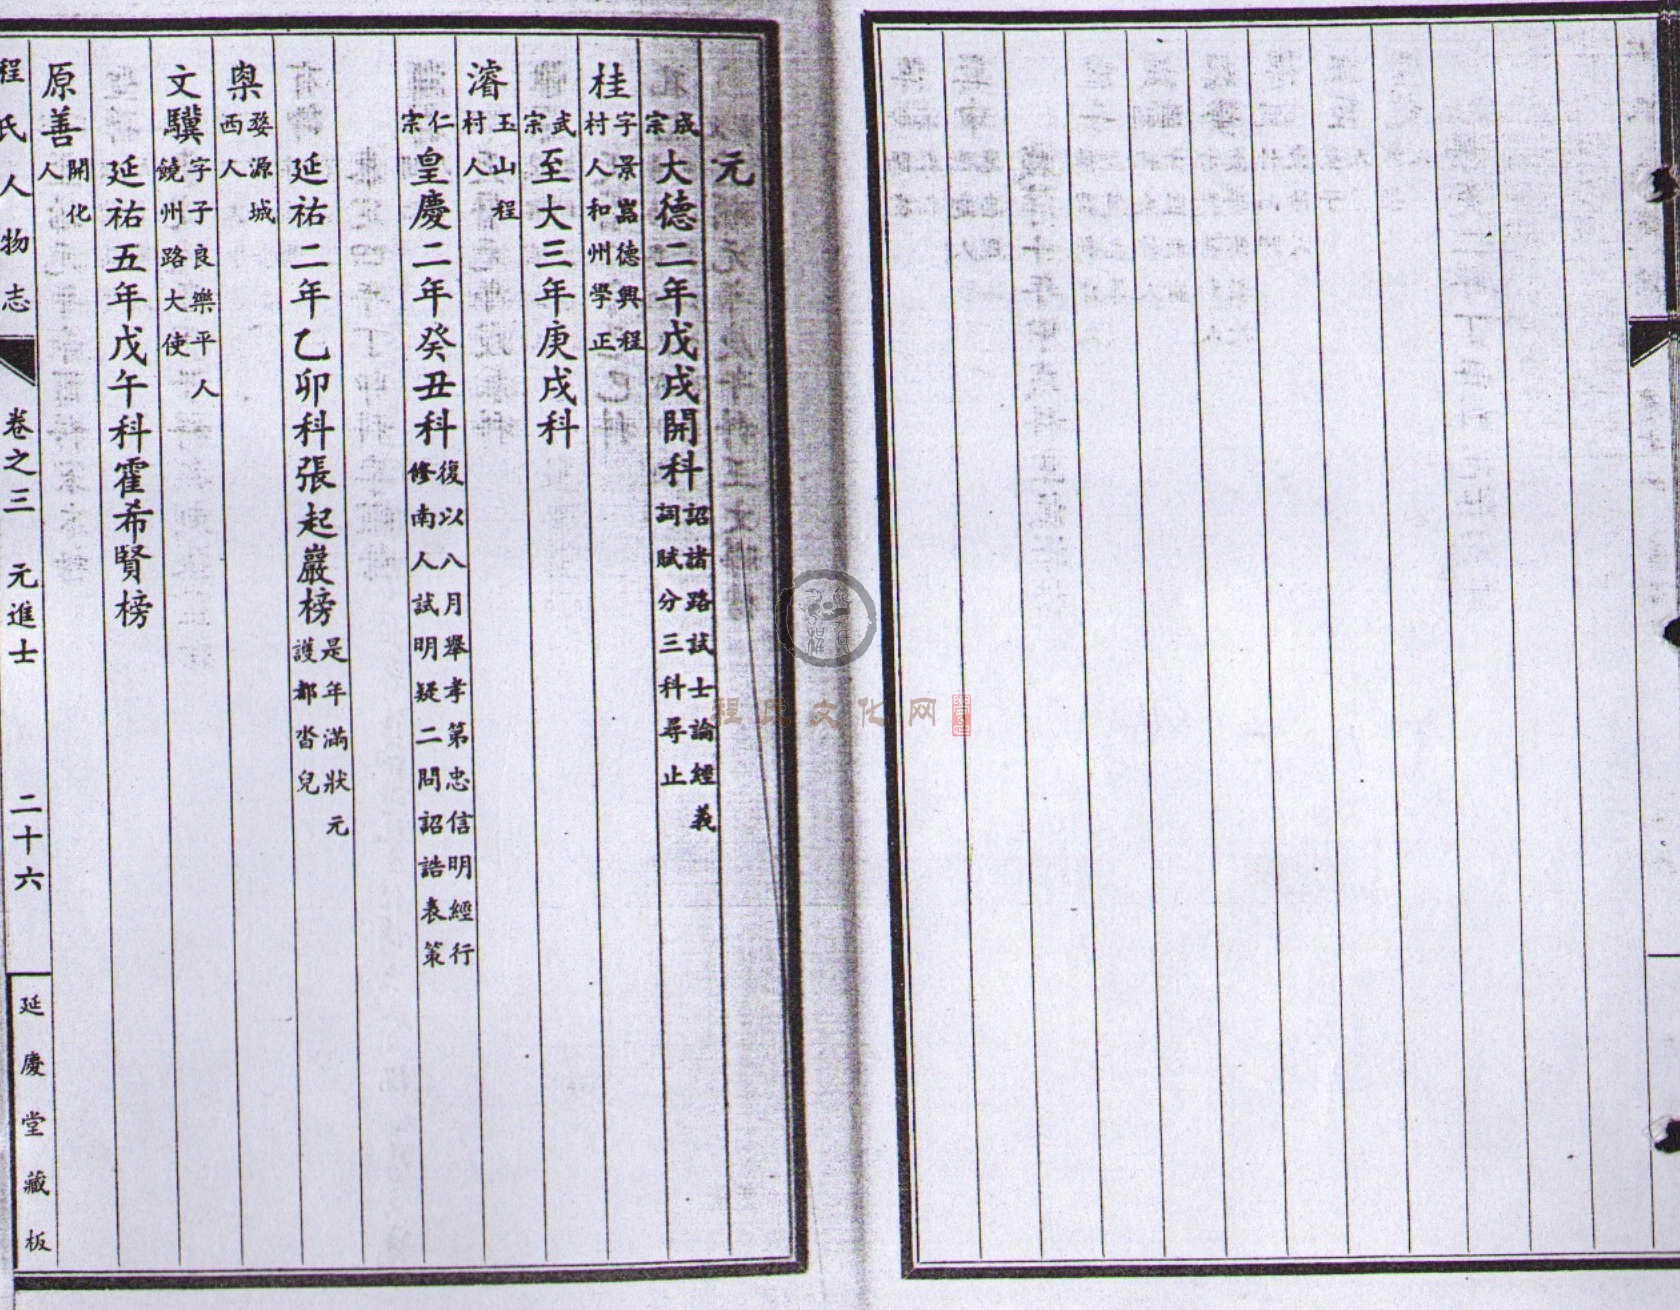 元
成宗大德二年戊戌開科詔諸路試士論經義詞賦分三科尋止
桂字景嵓德興程村人和州學正
武宗至大三年庚戌科
濬玉山程村人
仁宗皇慶二年癸丑科復以八月舉孝第忠信明經行修南人試明疑二問詔誥表策
延祐二年乙卯科張起巖榜是年滿狀元護都沓兒
婺源城西人
文驥字子良樂平人饒州路大使
延祐五年戊午科霍希賢榜
原善開化人
程氏人物志 卷之三 元進士 二十六 延慶堂藏板
程氏文化网